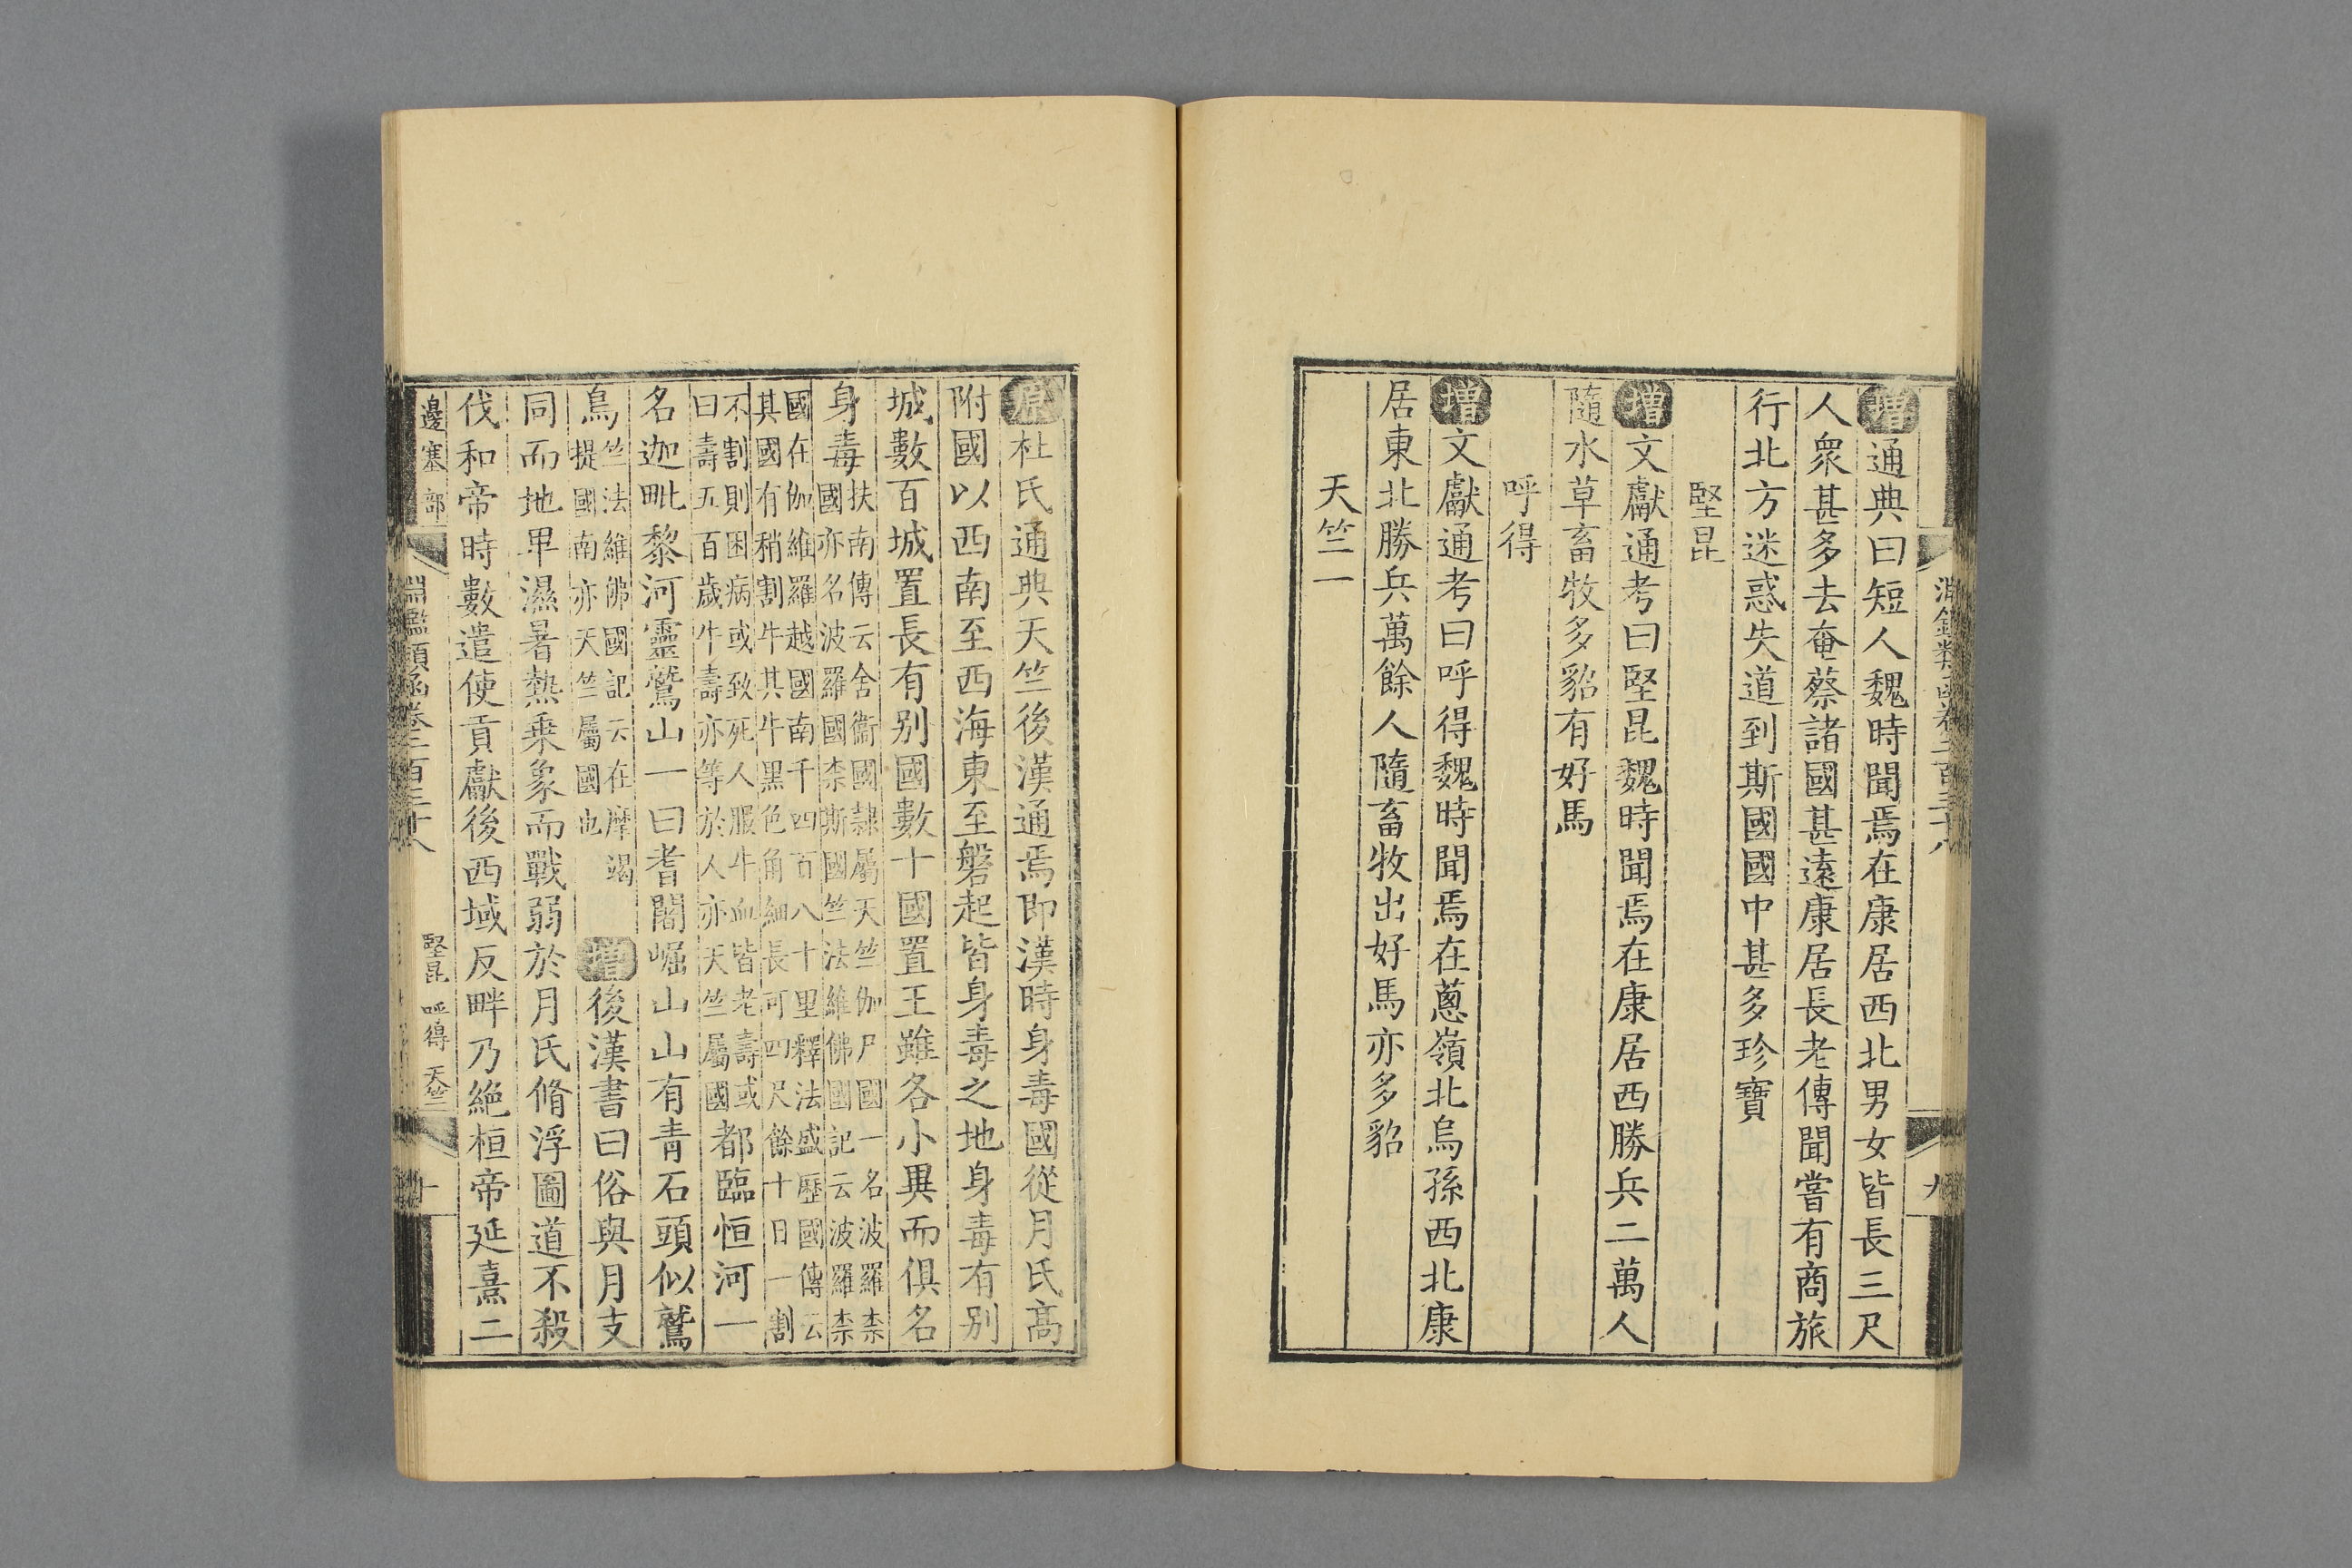 增通典曰短人魏時聞焉在康居西北男女皆長三尺
人衆甚多去奄蔡諸國甚遠康居長老傳聞嘗有商旅
行北方迷惑失道到斯國國中甚多珍寶
堅昆
增文獻通考曰堅昆魏時聞焉在康居西北勝兵二萬人
隨水草畜牧多貂有好馬
呼得
增文獻通考曰呼得魏時聞焉在蔥嶺北烏孫西北康
居東北勝兵萬餘人隨畜牧出好馬亦多貂
天竺一
原杜氏通典天竺後漢通焉即漢時身毒國從月氏高
附國以西南至西海東至磐起皆身毒之地身毒有别
城數百城置長有别國數十國置王雖各小異而俱名
身毒扶南傳云舍衞國隷屬天竺伽尸國一名波羅柰
國亦名波羅國柰斯國竺法維佛國記云波羅柰
國在伽維羅越國南千四百八十里釋法盛歷國傳云
其國有稍割牛其牛黑色角細長可四尺餘十日一割
不割則困病或致死人服牛血皆老壽或
曰壽五百歲牛壽亦等於人亦天竺屬國都臨恒河一
名迦毗黎河靈鷲山一曰耆闍崛山山有青石頭似鷲
鳥竺法維佛國記云在摩竭
提國南亦天竺屬國也增後漢書曰俗與月支
同而地卑濕暑熱乘象而戰弱於月氏脩浮圖道不殺
伐和帝時數遣使貢獻後西域反畔乃絶桓帝延熹二
邊塞部 淵鑑類函卷二百三十八 堅昆 呼得 天竺 十